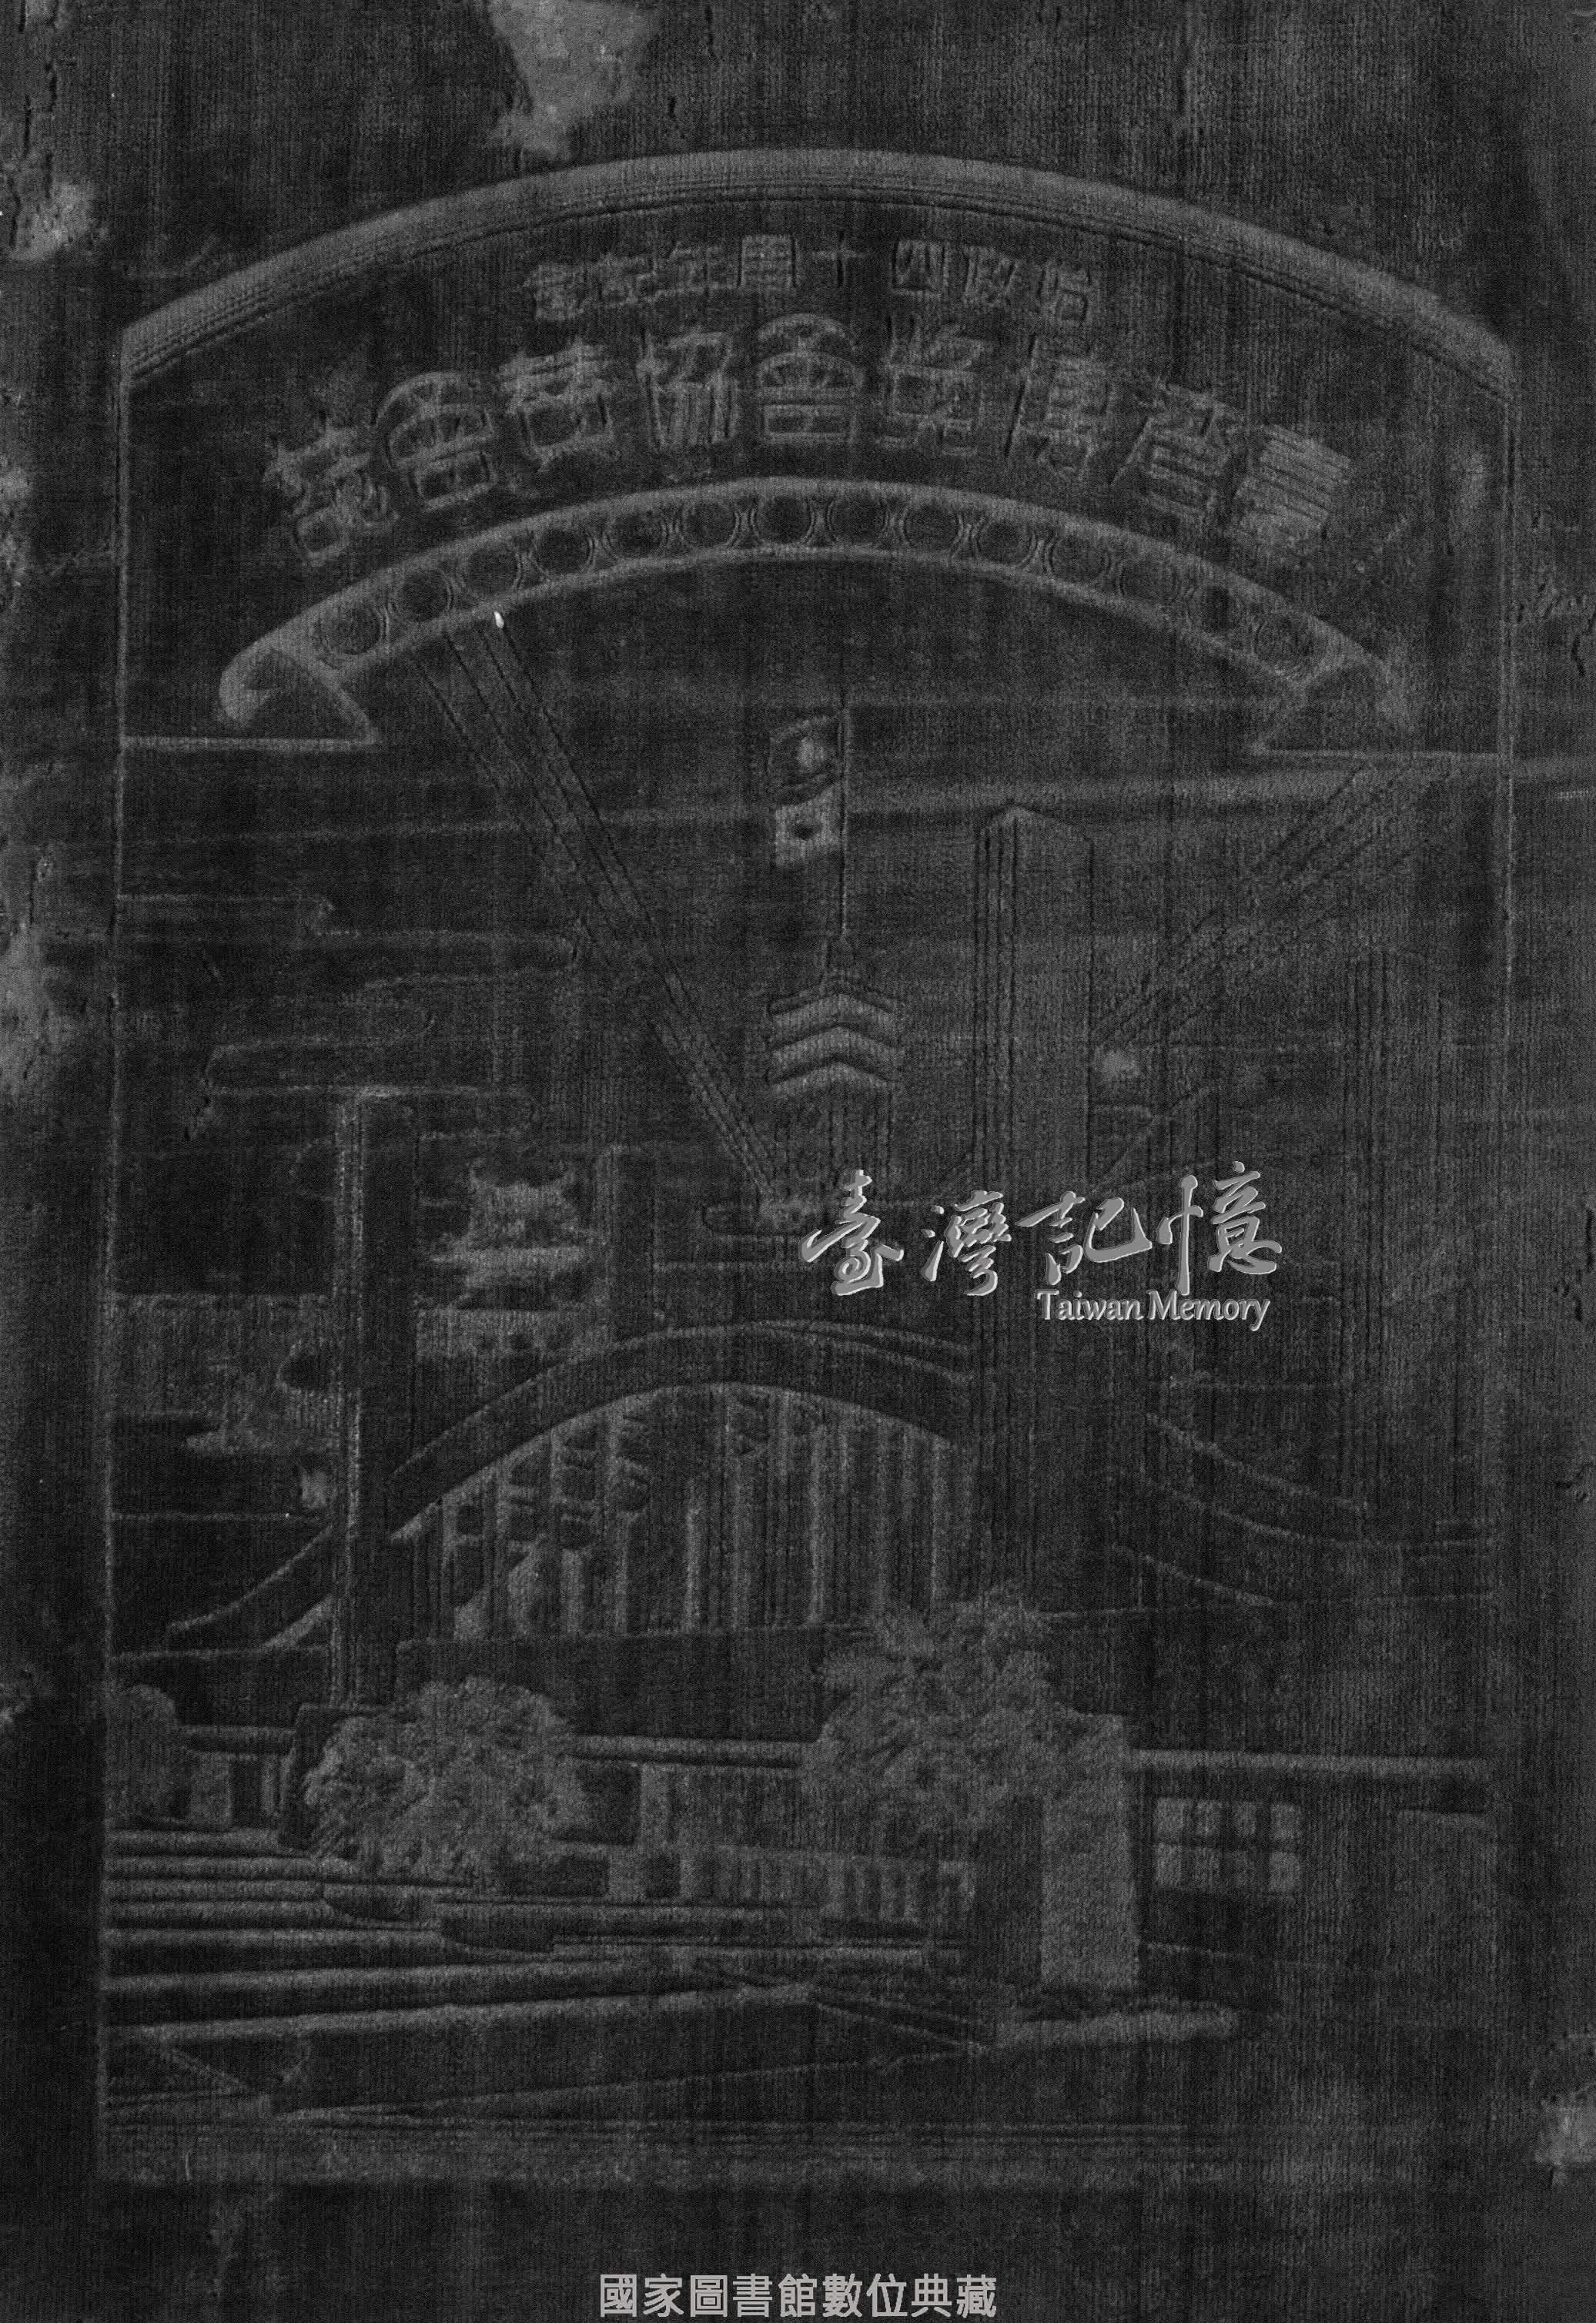 始政四十周年記念
臺灣博覽會協贊會誌
臺灣記憶
Taiwan Memory
國家圖書館數位典藏